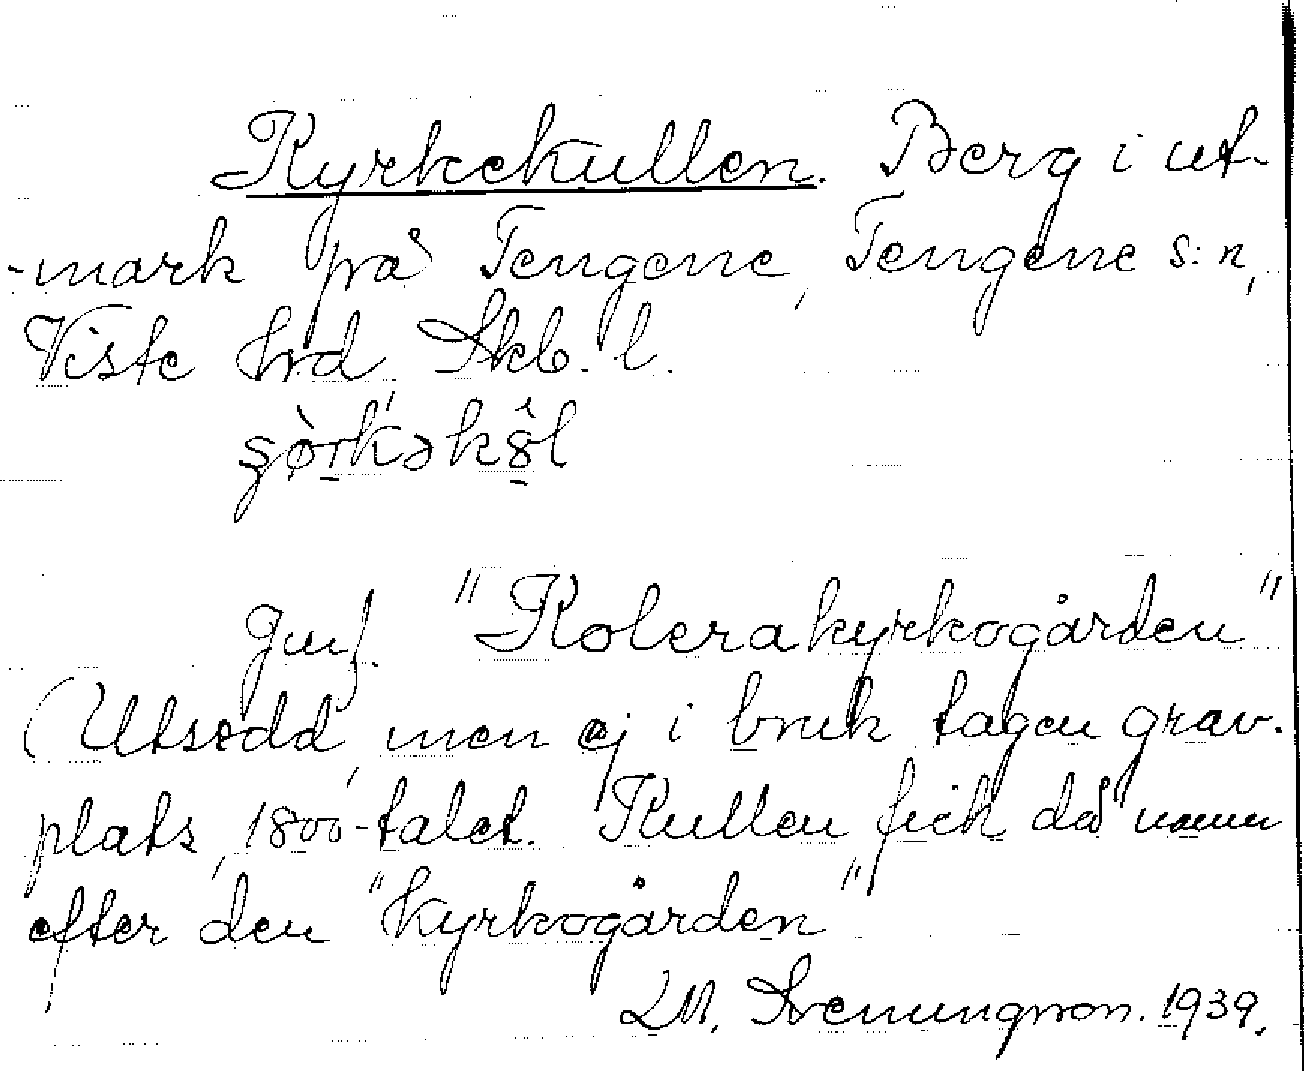 Kyrkekullen. Berg i ut-
-mark på Tengene, Tengene s:n,
Viste hrd, Skb. l.
Jmf. "Kolerakyrkogården"
(Utsedd, men ej i bruk tagen grav-
plats, 1800-talet. Kullen fick då namn
efter den "kyrkogården"
1939.